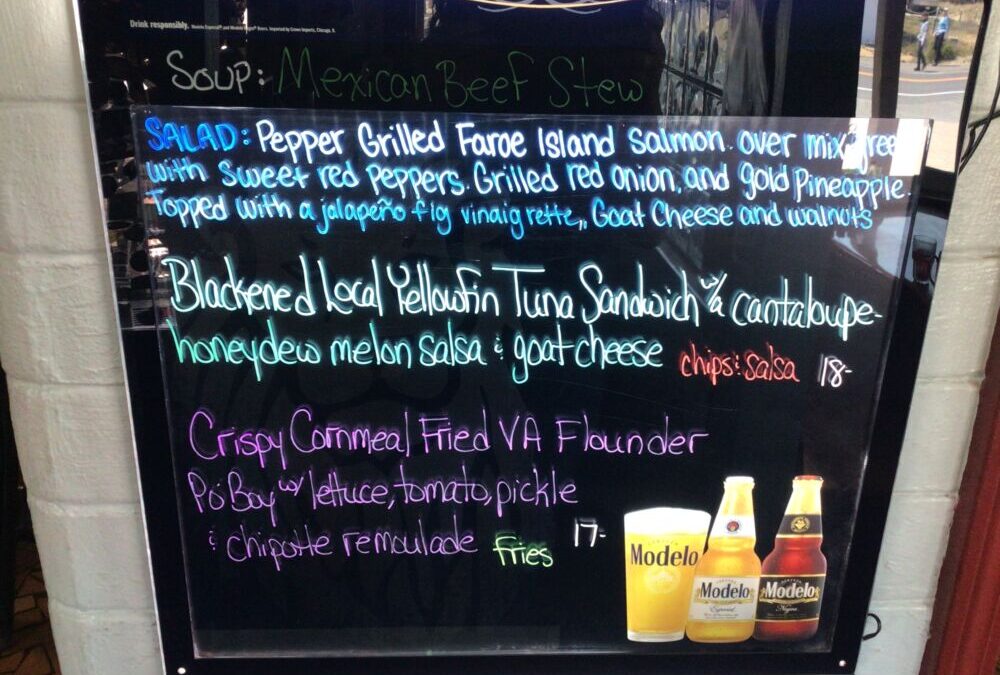 Drink responsibly.
Soup: Mexican Beef Stew
SALAD: Pepper Grilled Faroe Island Salmon over mix gree
with sweet red peppers. Grilled red onion, and gold pineapple.
Topped with a jalapeño fig vinaigrette,, Goat Cheese and walnuts
Blackened Local Yellowfin Tuna Sandwich w/a cantaloupe-
honeydew melon salsa & goat cheese chips & salsa 18-
Crispy Cornmeal Fried VA Flounder
Po'Boy w/ lettuce, tomato, pickle
& chipotle remoulade fries 17-
Modelo
Modelo
Especial
Modelo
Negra